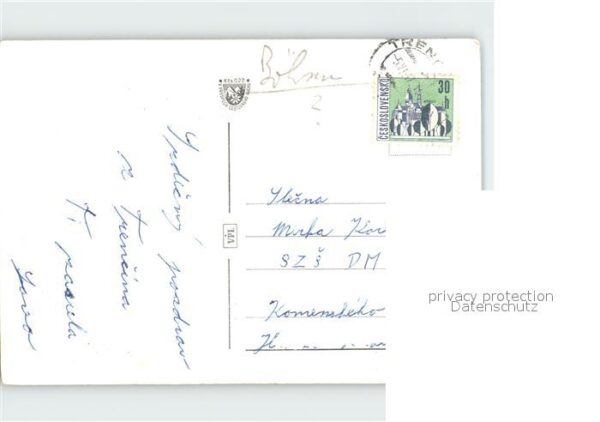 Böhmen
?
TRENČ
ČESKOSLOVENSKO
30
h
Srdečný pozdrav
z Trenčína
Ti posiela
Slečna
Mirka
SZŠ DM
Komenského
privacy protection
Datenschutz